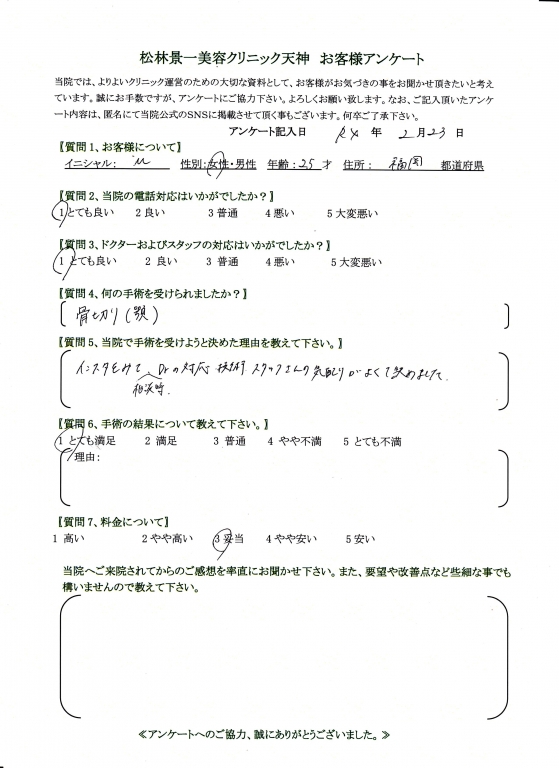 松林景一美容クリニック天神 お客様アンケート
当院では、よりよいクリニック運営のための大切な資料として、お客様がお気づきの事をお聞かせ頂きたいと考え
ています。誠にお手数ですが、アンケートにご協力下さい。よろしくお願い致します。なお、ご記入頂いたアンケ
ート内容は、匿名にて当院公式のSNSに掲載させて頂く事もございます。何卒ご了承下さい。
アンケート記入日 R4 年 2 月 23 日
【質問1、お客様について】
イニシャル: M 性別:女性・男性 年齢:25才 住所: 福岡 都道府県
【質問2、当院の電話対応はいかがでしたか?】
1 とても良い 2 良い 3 普通 4 悪い 5 大変悪い
【質問3、ドクターおよびスタッフの対応はいかがでしたか?】
1 とても良い 2 良い 3 普通 4 悪い 5 大変悪い
【質問4、何の手術を受けられましたか?】
骨切り(顎)
【質問5、当院で手術を受けようと決めた理由を教えて下さい。】
インスタをみて、Drの対応 技術 スタッフさんの気配りがよくて決めました。
相談時
【質問6、手術の結果について教えて下さい。】
1 とても満足 2 満足 3 普通 4 やや不満 5 とても不満
理由:
【質問7、料金について】
1 高い 2 やや高い 3 妥当 4 やや安い 5 安い
当院へご来院されてからのご感想を率直にお聞かせ下さい。また、要望や改善点など些細な事でも
構いませんので教えて下さい。
≪アンケートへのご協力、誠にありがとうございました。≫